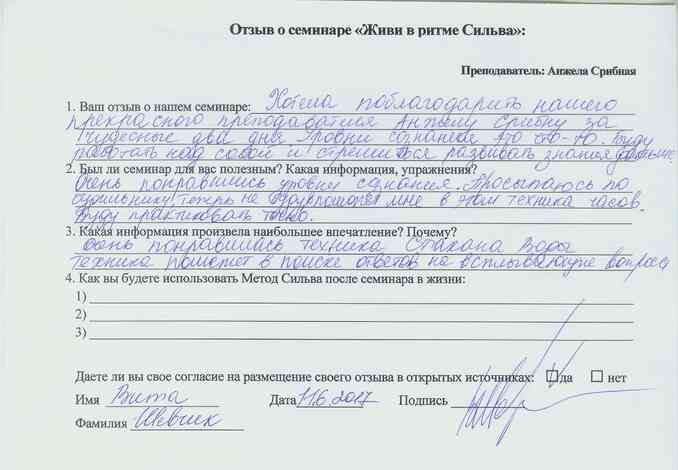 Отзыв о семинаре «Живи в ритме Сильва»:
Преподаватель: Анжела Срибная
1. Ваш отзыв о нашем семинаре: Хотела поблагодарить нашего
прекрасного преподавателя Анжелу Срибну за
чудесные два дня Уровни сознания это что-то. Буду
работать над собой и стремиться развивать знания дальше.
2. Был ли семинар для вас полезным? Какая информация, упражнения?
Очень понравились уровни сознания. Просыпаюсь по
будильнику теперь не мне в этом техника часов.
Буду практиковать
3. Какая информация произвела наибольшее впечатление? Почему?
Очень понравилась техника Стакана Воды
Техника помогает в поиске ответов на всплывающие вопросы
4. Как вы будете использовать Метод Сильва после семинара в жизни:
1)
2)
3)
Даете ли вы свое согласие на размещение своего отзыва в открытых источниках: да нет
Имя Вита Дата 11.6.2017 Подпись
Фамилия Шевчик